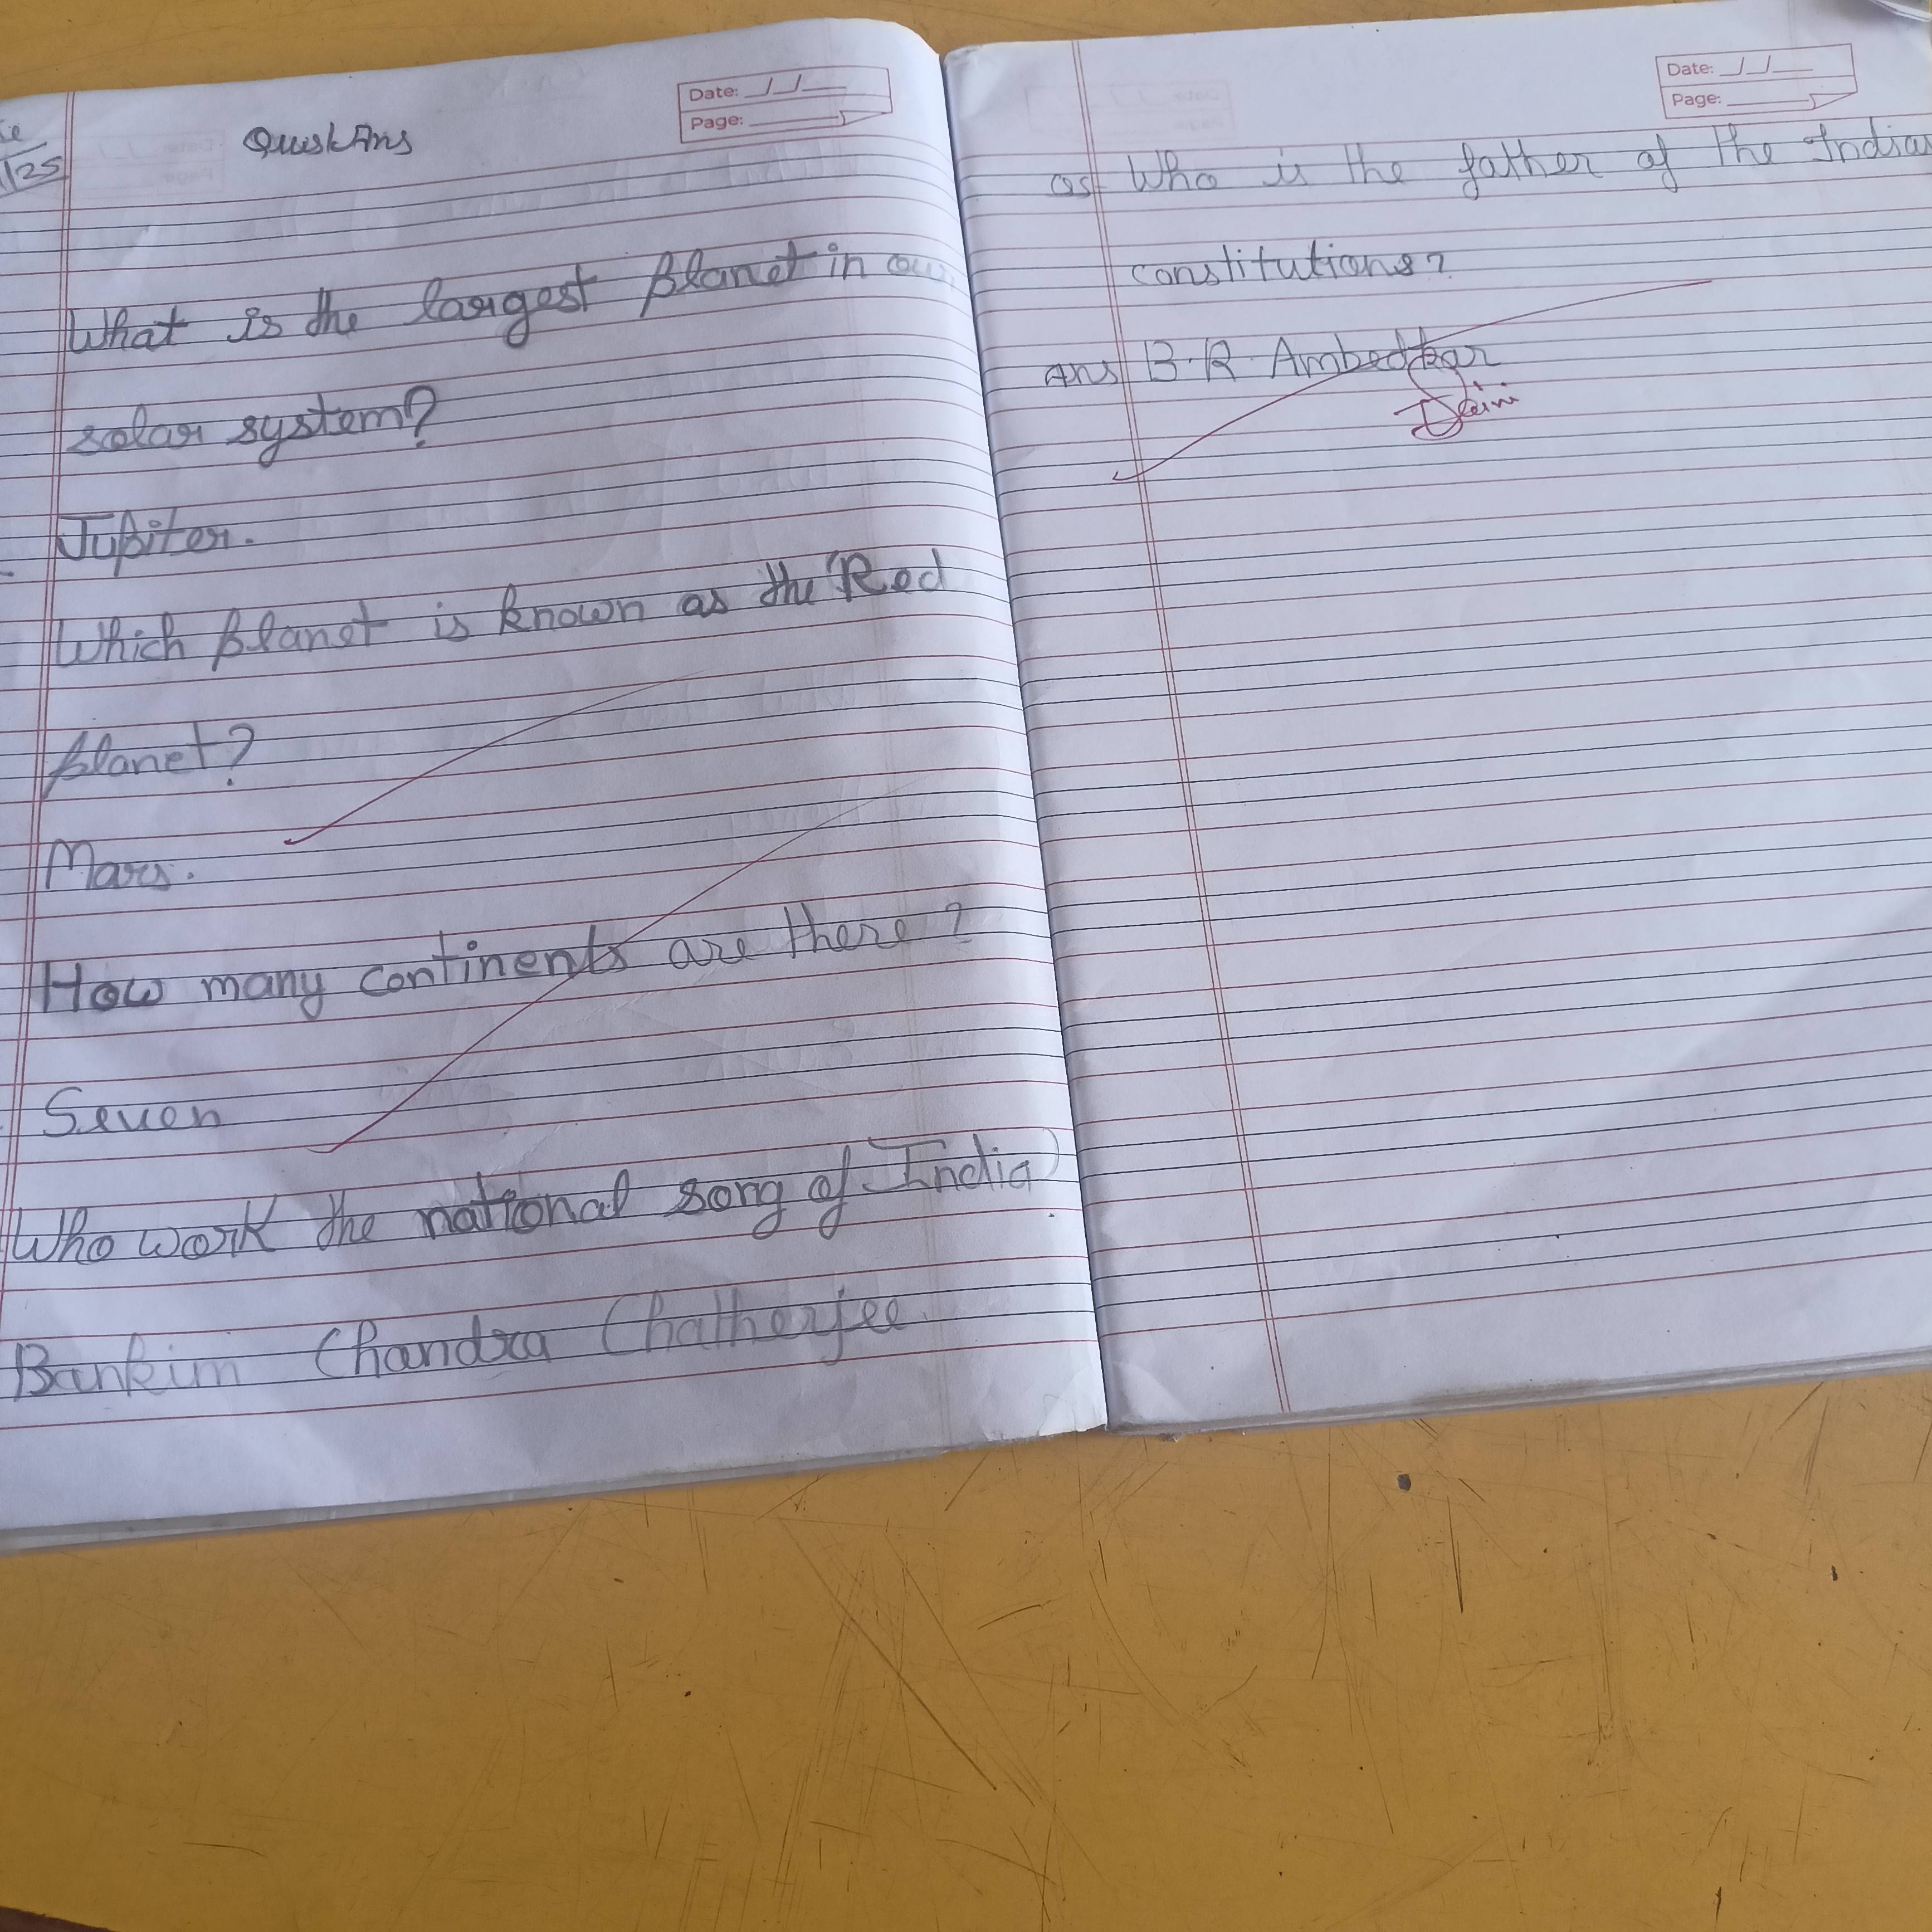 Date:
Page:
Ques/Ans
/25
What is the largest planet in our
solar system?
Jupiter.
Which planet is known as the Red
planet?
Mars.
How many continents are there?
Seven
Who work the national song of India
Bankim Chandra Chatherjee.
Date:
Page:
Q5 Who is the father of the Indian
constitutions?
Ans B.R. Ambedkar